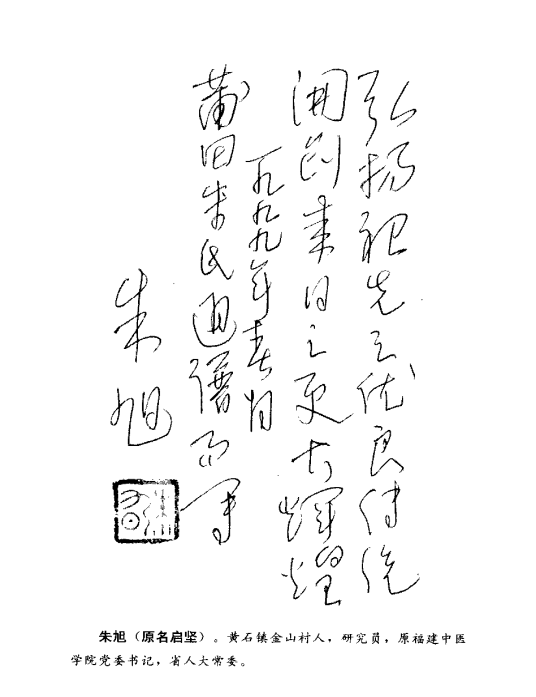 弘扬祖先之优良传统
开创来日之更大辉煌
一九九九年春为
莆田朱氏通谱而写
朱旭
朱旭
朱旭（原名启坚）。黄石镇金山村人，研究员，原福建中医
学院党委书记，省人大常委。